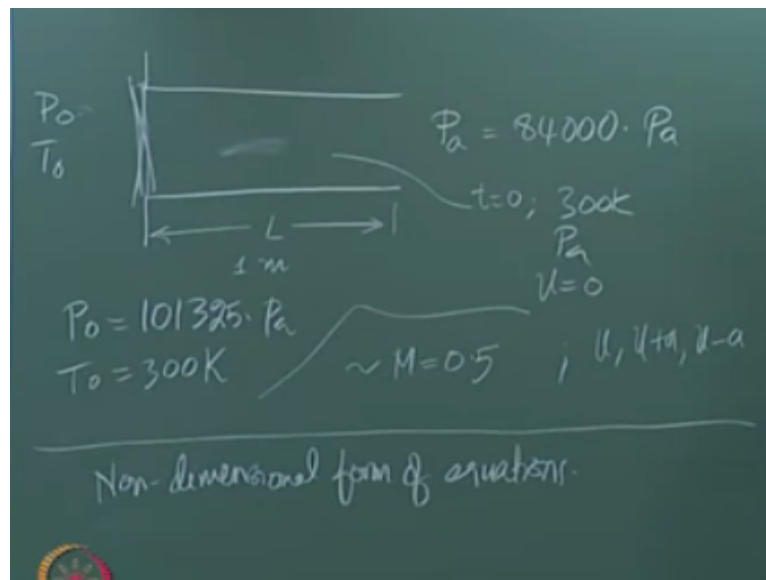 P₀
T₀
Pₐ = 84000. Pa
t=0; 300K
Pₐ
u=0
L
1 m
P₀ = 101325. Pa
T₀ = 300K
~ M=0.5 ; u, u+a, u-a
Non-dimensional form of equations.